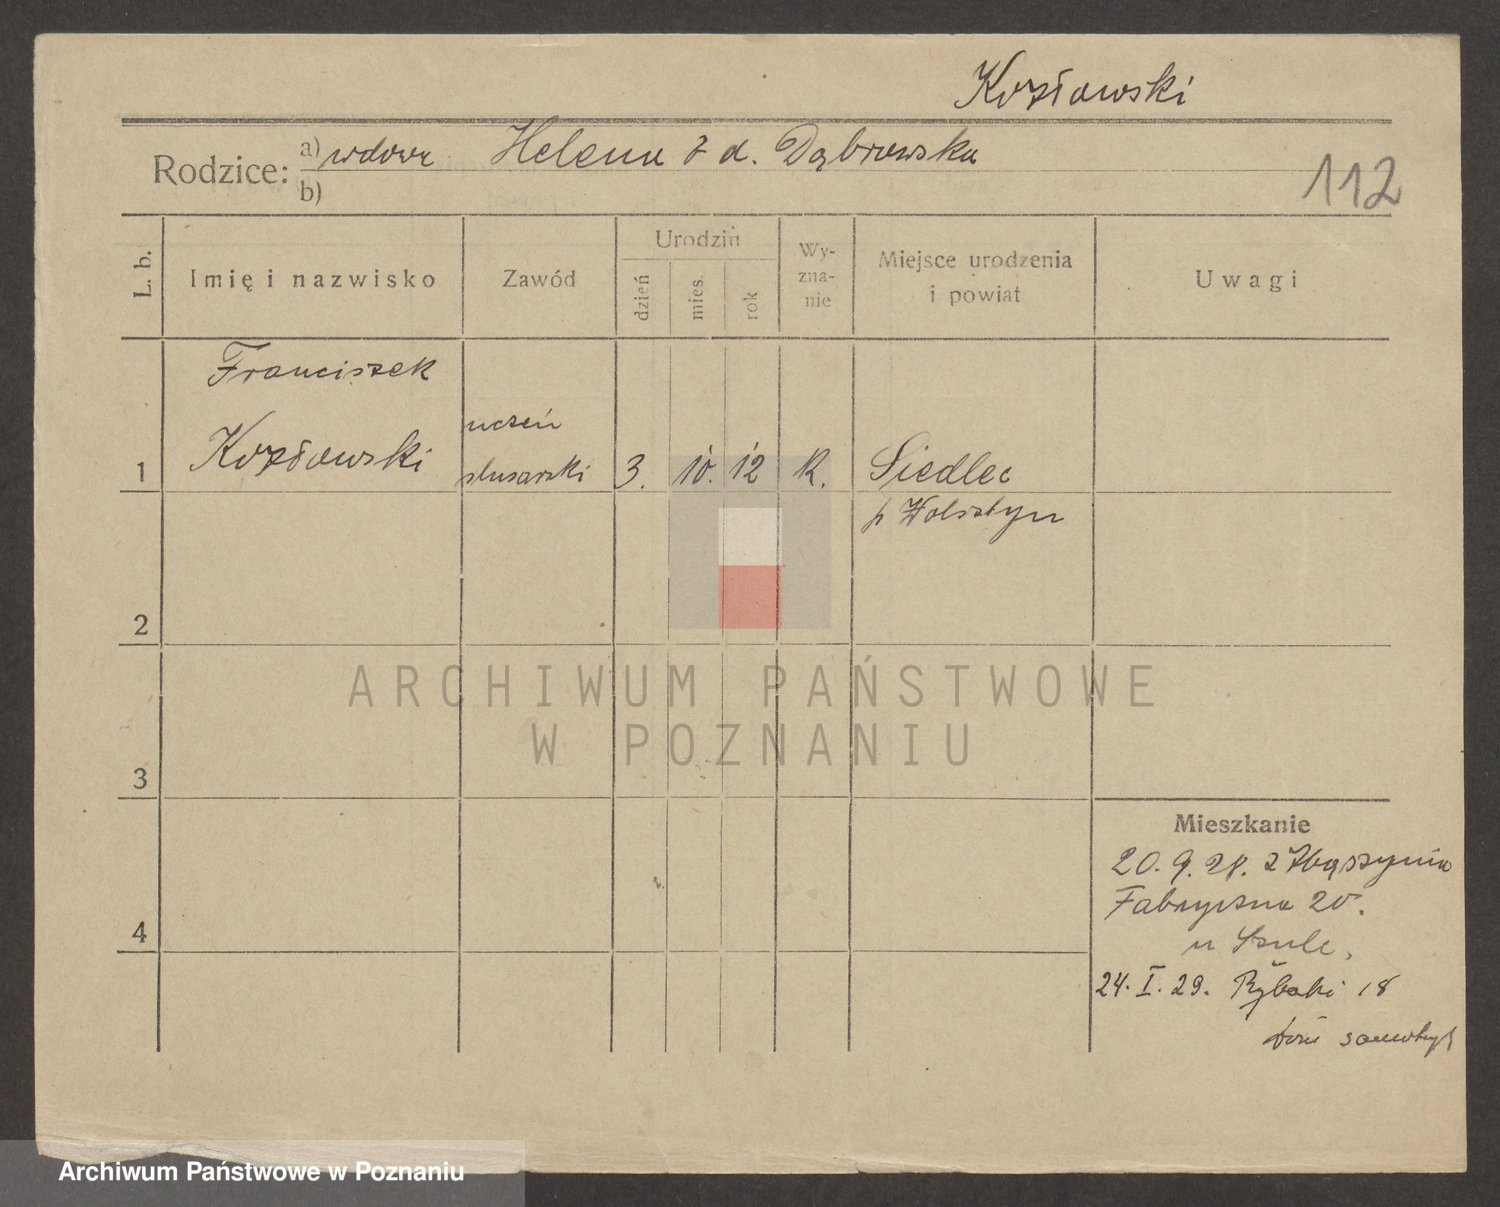 Kozłowski
Rodzice: a) wdowa Helena z d. Dąbrowska
b)
112
L. b.
Imię i nazwisko
Zawód
Urodzin
dzień
mies.
rok
Wy-
zna-
nie
Miejsce urodzenia
i powiat
Uwagi
Franciszek
uczeń
1 Kozłowski ślusarski 3. 10. 12 K. Siedlec
p Wolsztyn
2
ARCHIWUM PAŃSTWOWE
W POZNANIU
3
Mieszkanie
20. 9. 28. z Zbąszynia
Fabryczna 20.
4
u Szulc,
24. I. 29. Rybaki 18
Archiwum Państwowe w Poznaniu